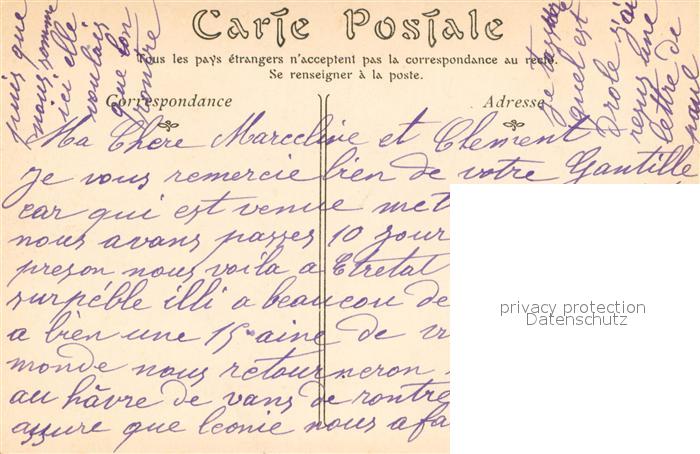 Carte Postale
Tous les pays étrangers n'acceptent pas la correspondance au recto.
Se renseigner à la poste.
Correspondance
Adresse
Ma Chere Marceline et Clement
Je vous remercie bien de votre Gantille
car qui est venue met
nous avans passes 10 jour
preson nous voila a Etretat
surpéble illi a beaucou de
a bien une 15aine de
monde nous retourneron
au hâvre de vans de rontre
assure que leonie nous a fa
puis que
nous somme
ici elle
voulais
que l'on
rontre
quel est
drole j'ai
resus une
lettre de
privacy protection
Datenschutz